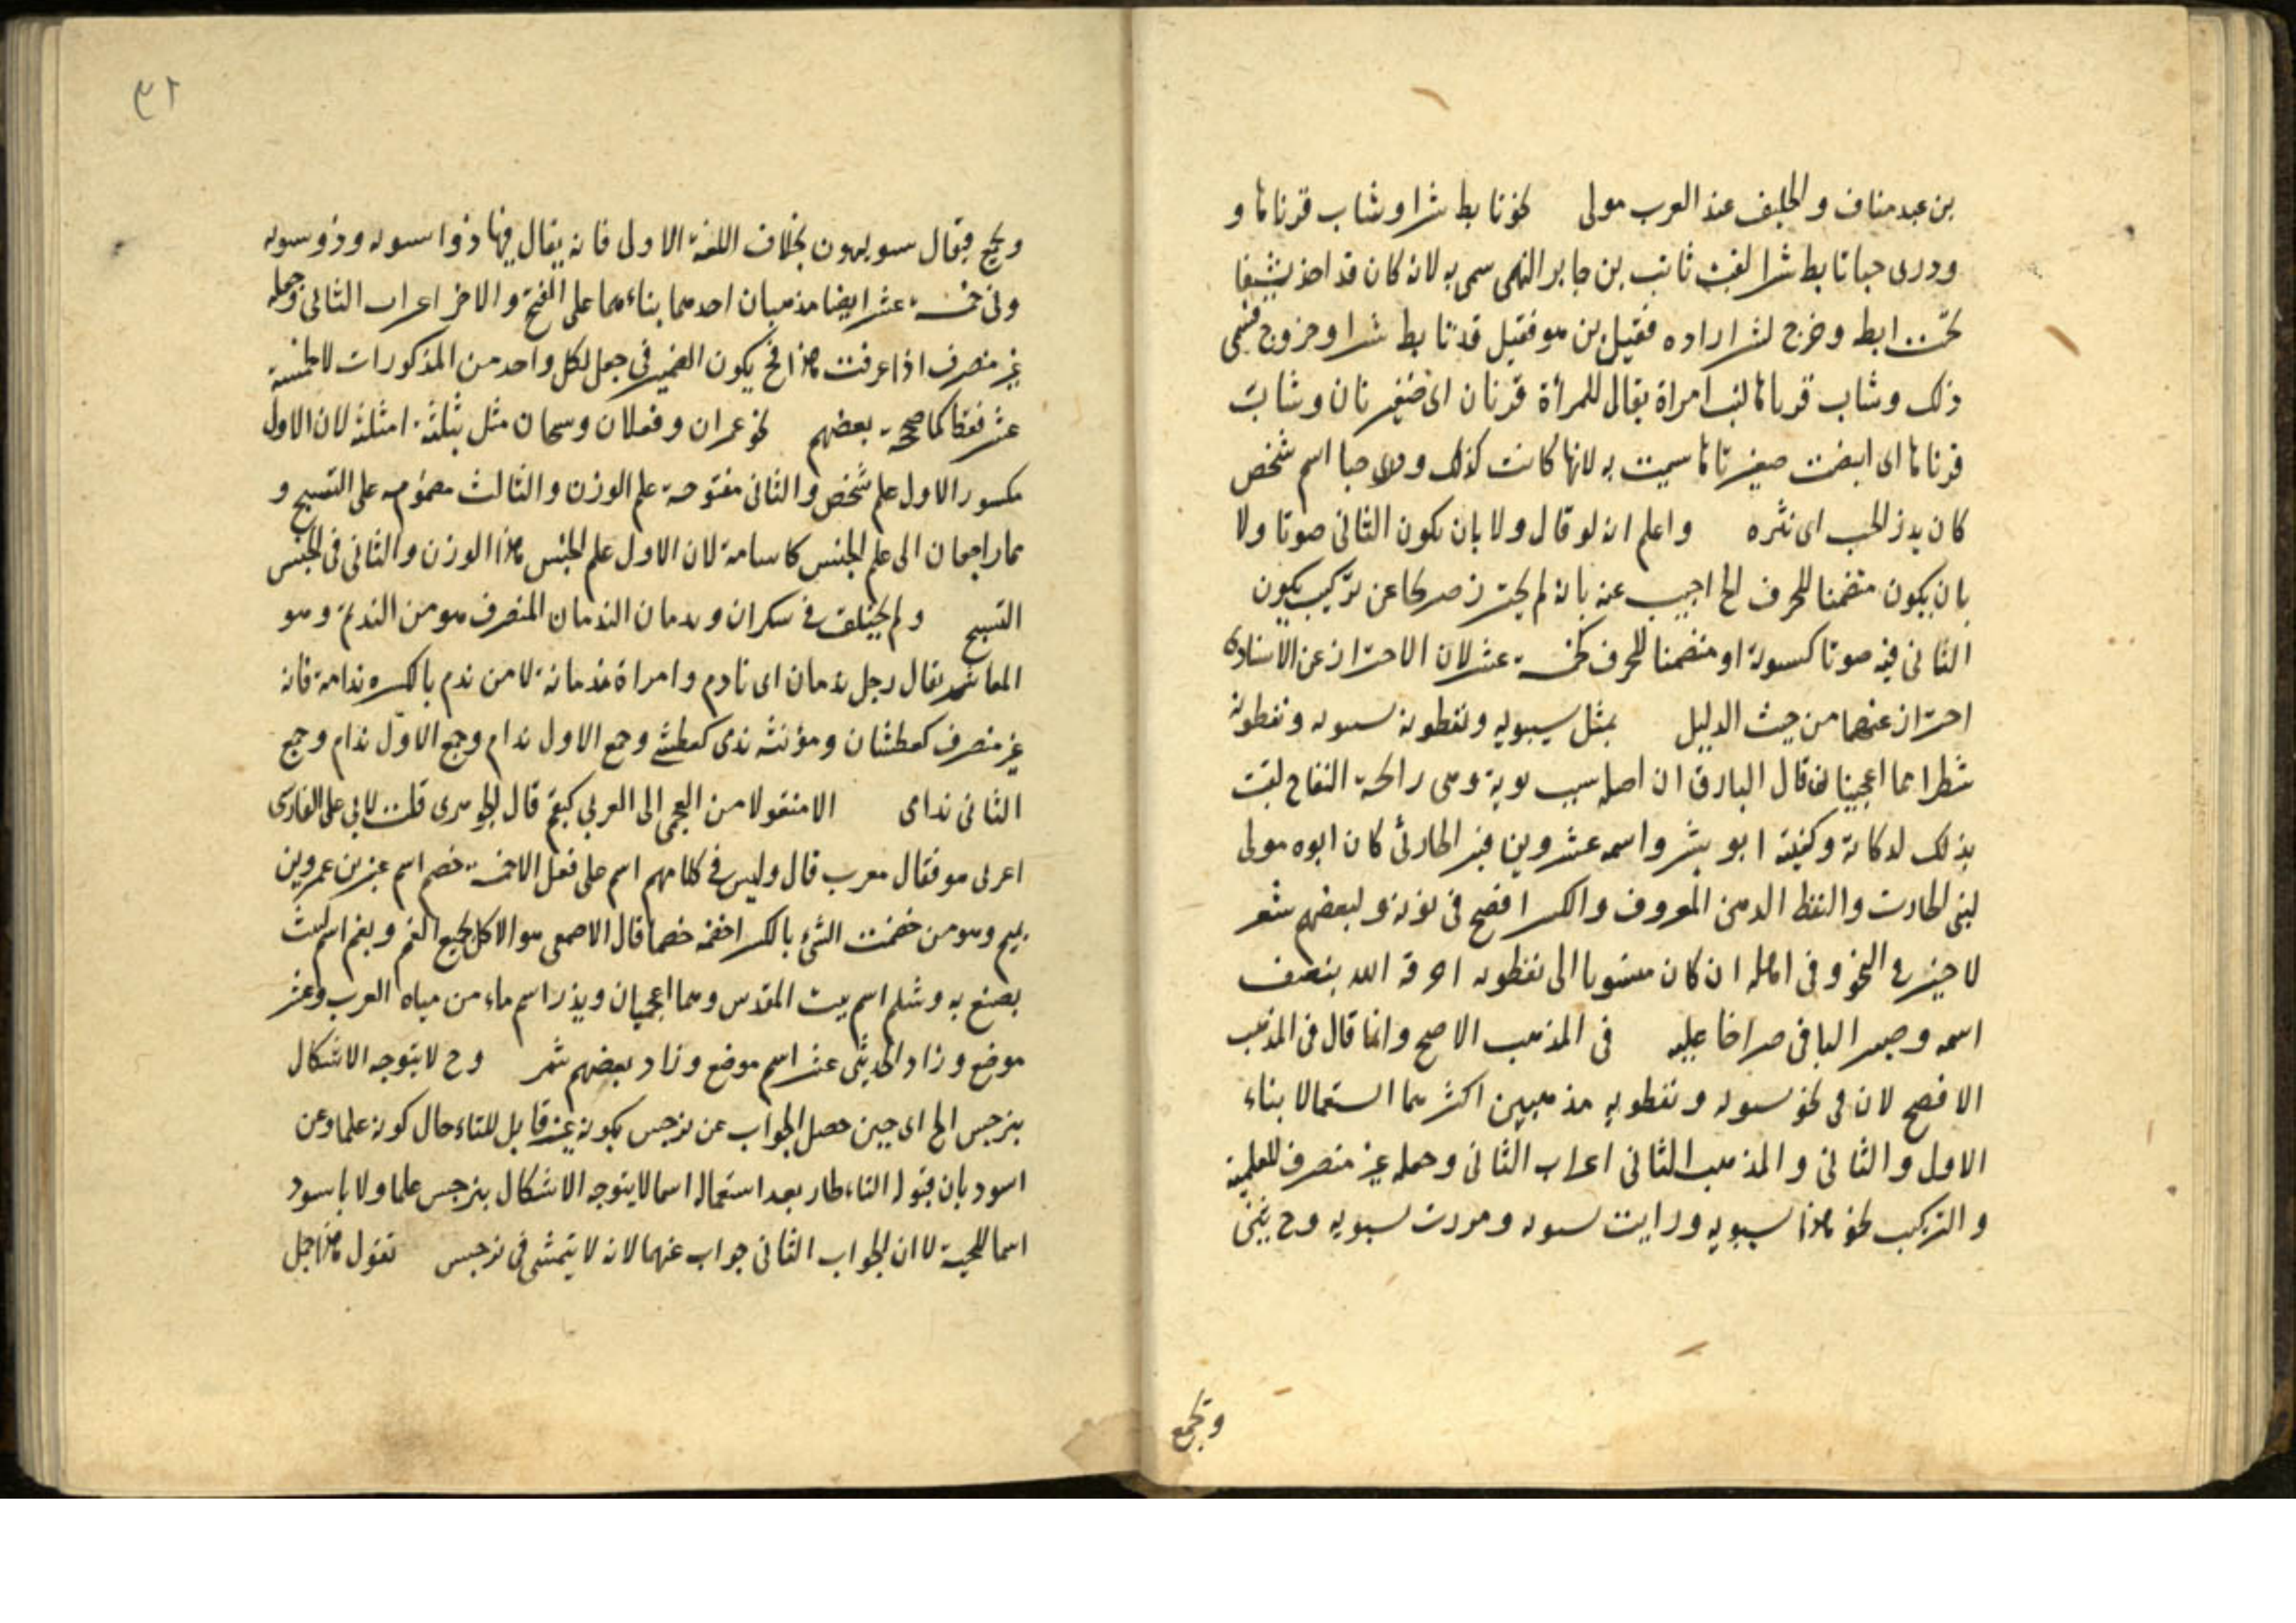 بن عبد مناف والحليف عند العرب مولى نحو تابط شرا وشاب قرناها و
ودرى حبا تابط شرا لقب ثابت بن جابر الفهمى سمى به لانه كان قد اخذ سيفا
تحت ابط وخرج لشر اراده فقيل اين هو فقيل قد تابط شرا وخرج فسمى
ذلك وشاب قرناها لقب امراة يقال للمرأة قرنان اى ضفيرتان وشابت
قرناها اى ابيضت ضفيرتاها سميت به لانها كانت كذلك وذرى حبا اسم شخص
كان يذر الحب اى نثره واعلم انه لو قال ولا بان يكون الثانى صوتا ولا
بان يكون متضمنا للحرف الخ اجيب عنه بانه لم يحترز صريحا عن تركيب يكون
الثانى فيه صوتا كسيبويه او متضمنا للحرف كخمسة عشر لان الاحتراز عن الاسنادى
احتراز عنهما من حيث الدليل بمثل سيبويه ونفطويه سيبويه ونفطويه
شطراهما اعجميتان قال ان اصله سيب بويه وهى رائحة التفاح لقب
بذلك لذكائه وكنيته ابو بشر واسمه عمرو بن قنبر الحارثى كان ابوه مولى
لبنى الحارث والنفط الدهن المعروف والكسر افصح فى نونه ولبعضهم شعر
لا خير فى النحو وفى اهله ان كان منسوبا الى نفطويه احرقه الله بنصف
اسمه وصير الباقى صراخا عليه فى المذهب الاصح وانما قال فى المذهب
الافصح لان فى نحو سيبويه ونفطويه مذهبين اكثرهما استعمالا بناء
الاول والثانى والمذهب الثانى اعراب الثانى وجعله غير منصرف للعلمية
والتركيب نحو هذا سيبويه ورايت سيبويه ومررت بسيبويه وح يثنى
وتجمع
٣١
ويجمع فيقال سيبويهون بخلاف اللغة الاولى فانه يقال فيها ذوا سيبويه وذوو سيبويه
وفى خمسة عشر ايضا مذهبان احدهما بناءهما على الفتح والاخر اعراب الثانى وجعله
غير منصرف اذا عرفت هذا فح يكون الضمير فى جعل لكل واحد من المذكورات لا لخمسة
عشر فقط كما صححه بعضهم نحو عمران وفعلان وسبحان مثل بثلثة امثلة لان الاول
مكسور الاول علم شخص والثانى مفتوحة علم الوزن والثالث مضمومه على التسبيح و
هما راجعان الى علم الجنس كاسامة لان الاول علم لجنس هذا الوزن والثانى فى الجنس
التسبيح ولم يختلف فى سكران وندمان الندمان المنصرف هو من الندم وهو
يقال رجل ندمان اى نادم وامراة ندمانة لا من ندم بالكسر ندامة فانه
غير منصرف كعطشان ومؤنثه ندمى كعطشى وجمع الاول ندام وجمع الاول ندام وجمع
الثانى ندامى الا منقولا من العجمى الى العربى كبقم قال الجوهرى قلت لابى على الفارسى
اعربى هو فقال معرب قال وليس فى كلامهم اسم على فعل الا خمسة خضم اسم عنبر بن عمرو بن
تميم وهو من خضمت الشئ بالكسر اخضمه خضما قال الاصمعى هو الاكل بجميع الفم وبقم اسم نبت
يصبغ به وشلم اسم بيت المقدس وهما اعجميان وبذر اسم ماء من مياه العرب وعثر
موضع وزاد الحديثى عثر اسم موضع وزاد بعضهم شمر وح لا يتوجه الاشكال
بنرجس الخ اى حين حصل الجواب عن نرجس بكونه غير قابل للتاء حال كونه علما وعن
اسود بان قبوله التاء طار بعد استعماله اسما لا يتوجه الاشكال بنرجس علما ولا باسود
اسما للحية لا ان الجواب الثانى جواب عنهما لانه لا يتمشى فى نرجس تقول هذا جبل